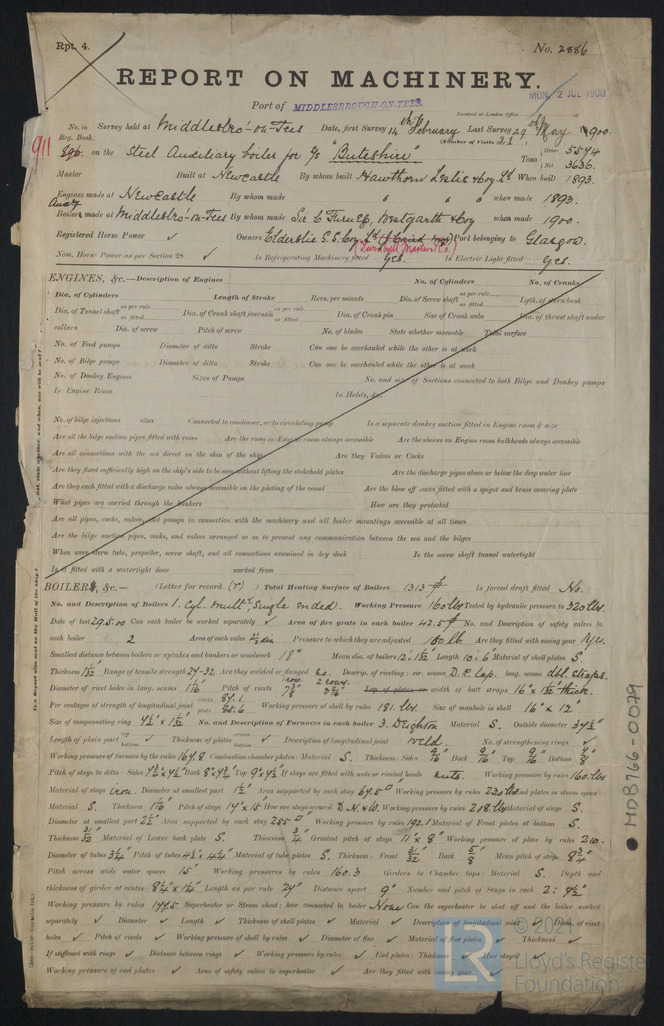 Rpt. 4.
No. 2886
REPORT ON MACHINERY.
Port of MIDDLESBROUGH-ON-TEES.
MON. 2 JUL 1900
Received at London Office
No. in Survey held at Middlesbro'-on-Tees Date, first Survey 14th February Last Survey 29th May 1900
Reg. Book. (Number of Visits 21
911
on the Steel Auxiliary boiler for S/S "Buteshire" Tons Gross 5544
Net 3636.
Master Built at Newcastle By whom built Hawthorn Leslie & Coy Ld When built 1893.
Engines made at Newcastle By whom made " " " when made 1893.
Auxy
Boilers made at Middlesbro'-on-Tees By whom made Sir C. Furness, Westgarth & Coy when made 1900.
Registered Horse Power ✓ Owners Elderslie S.S. Coy Ld Port belonging to Glasgow.
(Turnbull Martin & Co.)
Nom. Horse Power as per Section 28 ✓ Is Refrigerating Machinery fitted Yes. Is Electric Light fitted Yes.
ENGINES, &c.—Description of Engines No. of Cylinders No. of Cranks
Dia. of Cylinders Length of Stroke Revs. per minute Dia. of Screw shaft as per rule as fitted Lgth. of stern bush
Dia. of Tunnel shaft as per rule as fitted Dia. of Crank shaft journals as per rule as fitted Dia. of Crank pin Size of Crank webs Dia. of thrust shaft under
collars Dia. of screw Pitch of screw No. of blades State whether moveable Total surface
No. of Feed pumps Diameter of ditto Stroke Can one be overhauled while the other is at work
No. of Bilge pumps Diameter of ditto Stroke Can one be overhauled while the other is at work
No. of Donkey Engines Sizes of Pumps No. and size of Suctions connected to both Bilge and Donkey pumps
In Engine Room In Holds, &c.
No. of bilge injections sizes Connected to condenser, or to circulating pump Is a separate donkey suction fitted in Engine room & size
Are all the bilge suction pipes fitted with roses Are the roses in Engine room always accessible Are the sluices on Engine room bulkheads always accessible
Are all connections with the sea direct on the skin of the ship Are they Valves or Cocks
Are they fixed sufficiently high on the ship's side to be seen without lifting the stokehold plates Are the discharge pipes above or below the deep water line
Are they each fitted with a discharge valve always accessible on the plating of the vessel Are the blow off cocks fitted with a spigot and brass covering plate
What pipes are carried through the bunkers How are they protected
Are all pipes, cocks, valves, and pumps in connection with the machinery and all boiler mountings accessible at all times
Are the bilge suction pipes, cocks, and valves arranged so as to prevent any communication between the sea and the bilges
When were stern tube, propeller, screw shaft, and all connections examined in dry dock Is the screw shaft tunnel watertight
Is it fitted with a watertight door worked from
BOILERS, &c.— (Letter for record (r) ) Total Heating Surface of Boilers 1313 Is forced draft fitted No.
No. and Description of Boilers 1. Cyl. Mult., Single ended. Working Pressure 160 lbs Tested by hydraulic pressure to 320 lbs.
Date of test 29.5.00 Can each boiler be worked separately ✓ Area of fire grate in each boiler 42.5 No. and Description of safety valves to
each boiler 2 Area of each valve Pressure to which they are adjusted lb. Are they fitted with easing gear
Smallest distance between boilers or uptakes and bunkers or woodwork 18" Mean dia. of boilers Length 10'.6" Material of shell plates S.
Thickness 1 1/32 Range of tensile strength 27-32 Are they welded or flanged no. Descrip. of riveting: cir. seams D.R. lap. long. seams dbl. straps.
Diameter of rivet holes in long. seams 1 1/16 Pitch of rivets Lap of plates or width of butt straps 16" x 1 1/32" thick.
Per centages of strength of longitudinal joint rivets 87.1 plate 85.6 Working pressure of shell by rules 181 lbs. Size of manhole in shell 16" x 12"
Size of compensating ring No. and Description of Furnaces in each boiler 3. Deighton Material S. Outside diameter
Length of plain part top bottom Thickness of plates crown bottom Description of longitudinal joint weld. No. of strengthening rings ✓
Working pressure of furnace by the rules 164.8 Combustion chamber plates: Material S. Thickness: Sides 9/16" Back 9/16" Top 9/16" Bottom
Pitch of stays to ditto: Sides Back Top If stays are fitted with nuts or riveted heads nuts. Working pressure by rules 160 lbs
Material of stays iron. Diameter at smallest part 1 1/2" Area supported by each stay Working pressure by rules End plates in steam space:
Material S. Thickness 1 1/16 Pitch of stays 14" x 15" How are stays secured D.N. & W. Working pressure by rules Material of stays S.
Diameter at smallest part Area supported by each stay Working pressure by rules 192.1 Material of Front plates at bottom S.
Thickness 31/32 Material of Lower back plate S. Thickness 3/4 Greatest pitch of stays Working pressure of plate by rules 210.
Diameter of tubes 3 1/4 Pitch of tubes Material of tube plates S. Thickness: Front 31/32 Back 5/8 Mean pitch of stays
Pitch across wide water spaces 15" Working pressures by rules 160.3 Girders to Chamber tops: Material S. Depth and
thickness of girder at centre Length as per rule Distance apart 9" Number and pitch of Stays in each
Working pressure by rules Superheater or Steam chest; how connected to boiler None Can the superheater be shut off and the boiler worked
separately ✓ Diameter ✓ Length ✓ Thickness of shell plates ✓ Material ✓ Description of longitudinal joint ✓ Diam. of rivet
holes ✓ Pitch of rivets ✓ Working pressure of shell by rules ✓ Diameter of flue ✓ Material of flue plates ✓ Thickness ✓
If stiffened with rings ✓ Distance between rings ✓ Working pressure by rules ✓ End plates: Thickness ✓ How stayed ✓
Working pressure of end plates ✓ Area of safety valves to superheater ✓ Are they fitted with easing gear ✓
MDB766-0079
LR
© 2021
Lloyd's Register
Foundation